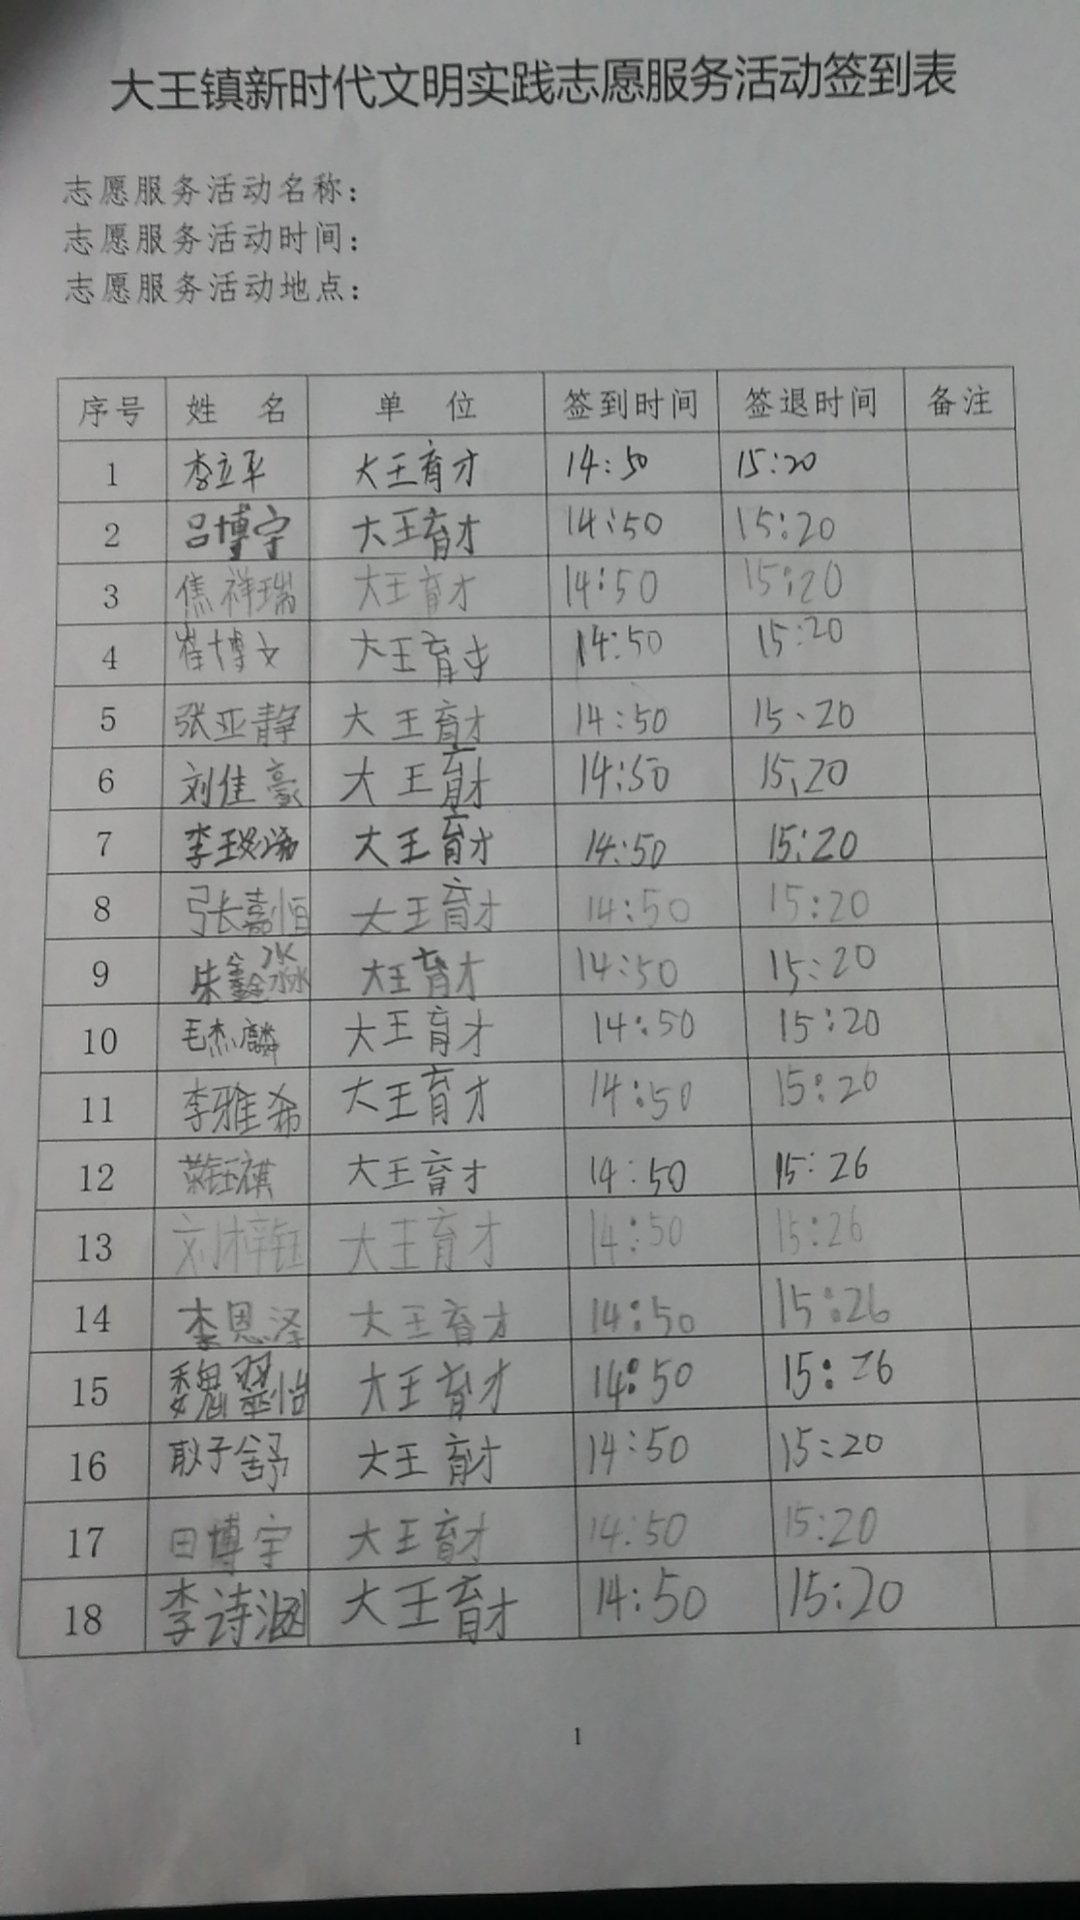 大王镇新时代文明实践志愿服务活动签到表
志愿服务活动名称：
志愿服务活动时间：
志愿服务活动地点：
序号 姓 名 单 位 签到时间 签退时间 备注
1 李立平 大王育才 14:50 15:20
2 吕博宇 大王育才 14:50 15:20
3 焦祥瑞 大王育才 14:50 15:20
4 崔博文 大王育才 14:50 15:20
5 张亚静 大王育才 14:50 15:20
6 刘佳豪 大王育才 14:50 15:20
7 李 大王育才 14:50 15:20
8 张嘉恒 大王育才 14:50 15:20
9 朱鑫淼 大王育才 14:50 15:20
10 毛杰麟 大王育才 14:50 15:20
11 李雅希 大王育才 14:50 15:26
12 荣钰祺 大王育才 14:50 15:26
13 刘梓钰 大王育才 14:50 15:26
14 李恩泽 大王育才 14:50 15:26
15 魏翠怡 大王育才 14:50 15:26
16 耿子舒 大王育才 14:50 15:20
17 田博宇 大王育才 14:50 15:20
18 李诗涵 大王育才 14:50 15:20
1